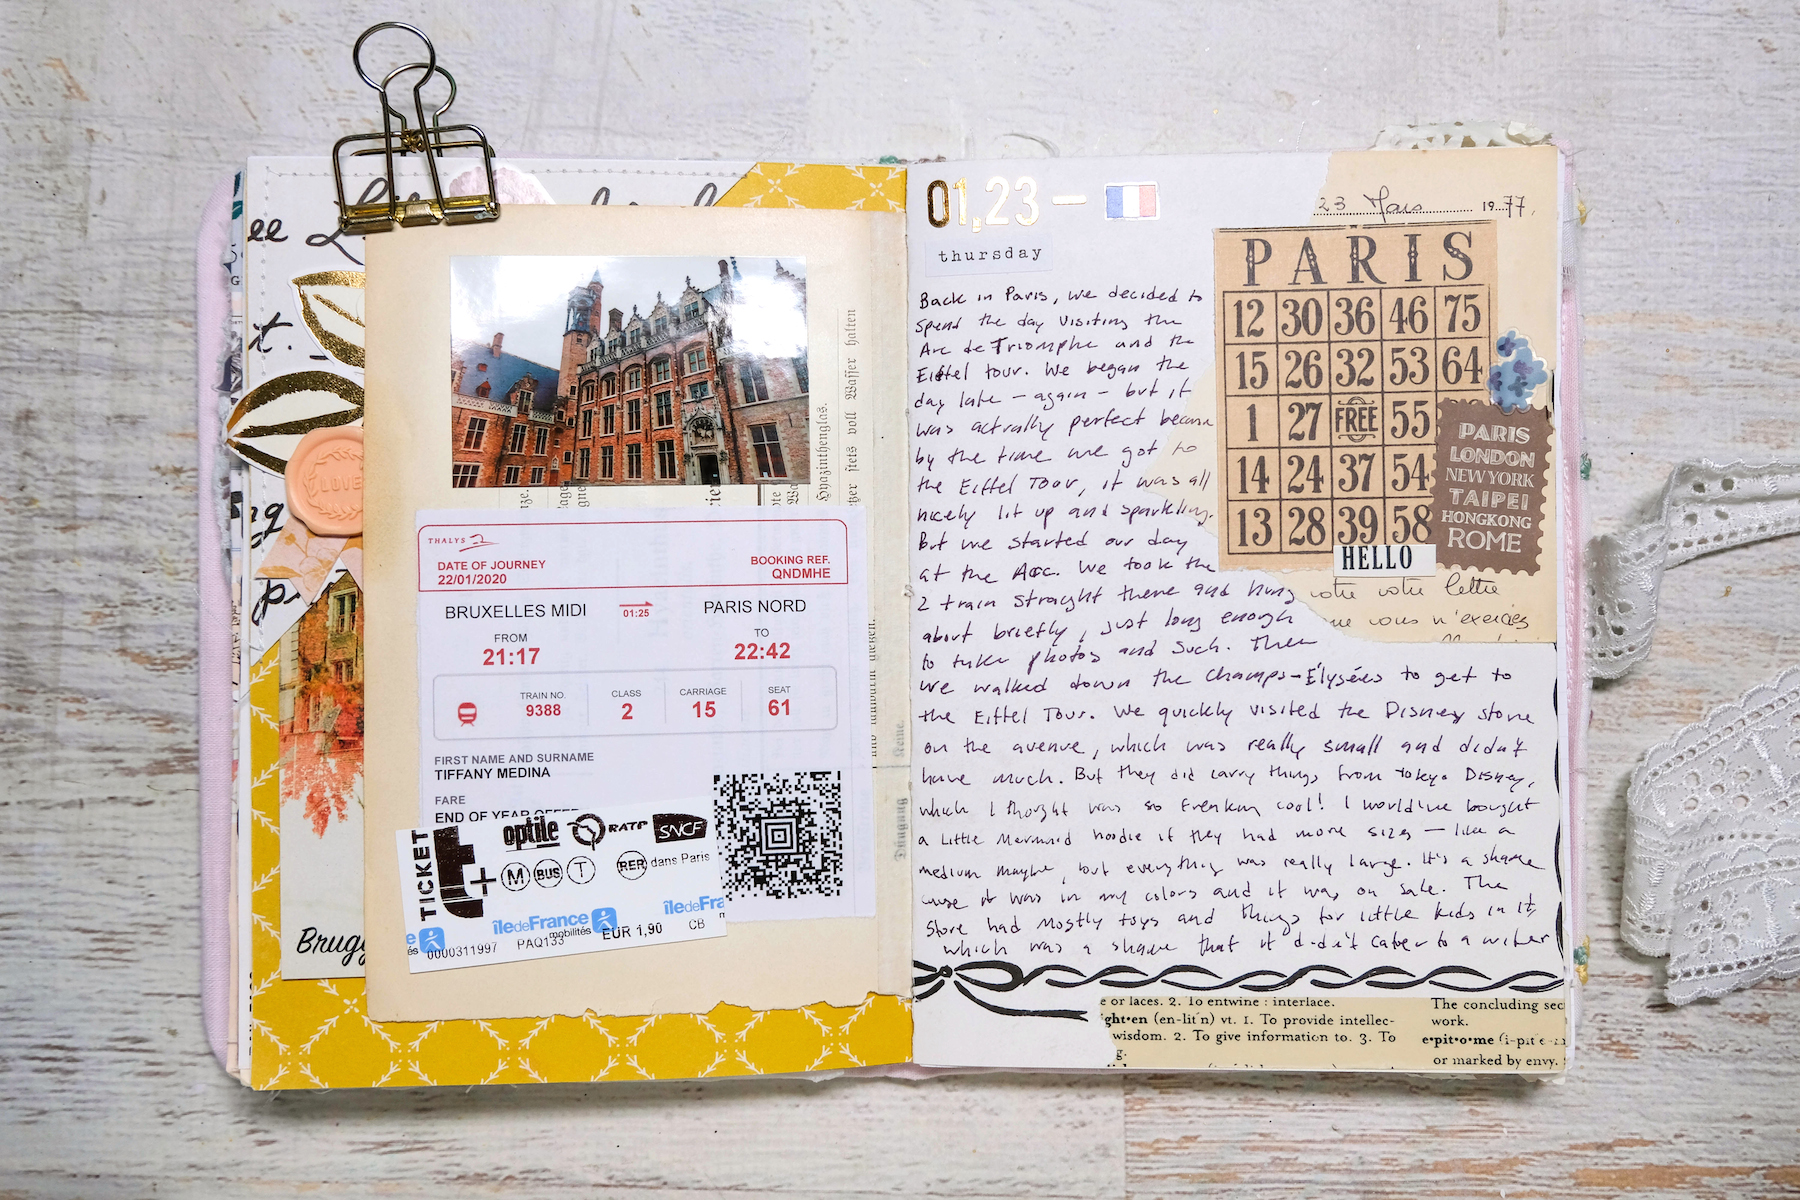 ee
t.
LOVE
Brugg
Hyazinthenglas.
stets voll Wasser halten
THALYS
DATE OF JOURNEY
22/01/2020
BOOKING REF.
QNDMHE
BRUXELLES MIDI
01:25
PARIS NORD
FROM
21:17
TO
22:42
TRAIN NO.
9388
CLASS
2
CARRIAGE
15
SEAT
61
FIRST NAME AND SURNAME
TIFFANY MEDINA
FARE
END OF YEAR OFFER
TICKET
t+
optile
RATP
SNCF
M
BUS
T
RER dans Paris
île de France
mobilités
île de Fra
e
és
0000311997
PAQ133
EUR 1,90
CB
Düngung
01,23 –
thursday
Back in Paris, we decided to
spend the day visiting the
Arc de Triomphe and the
Eiffel tour. We began the
day late – again – but it
was actually perfect because
by the time we got to
the Eiffel Tour, it was all
nicely lit up and sparkling.
But we started our day
at the Arc. We took the
2 train straight there and hung
about briefly, just long enough
to take photos and such. Then
we walked down the Champs-Élysées to get to
the Eiffel Tour. We quickly visited the Disney store
on the avenue, which was really small and didn't
have much. But they did carry things from Tokyo Disney,
which I thought was so freaking cool! I would've bought
a little Mermaid hoodie if they had more sizes – like a
medium maybe, but everything was really large. It's a shame
cause it was in my colors and it was on sale. The
store had mostly toys and things for little kids in it,
which was a shame that it didn't cater to a wider
23 Mars 1977.
PARIS
12 30 36 46 75
15 26 32 53 64
1 27 FREE 55
14 24 37 54
13 28 39 58
PARIS
LONDON
NEW YORK
TAIPEI
HONGKONG
ROME
HELLO
votre votre lettre
que vous n'exercies
e or laces. 2. To entwine : interlace.
ght•en (en-lit'n) vt. 1. To provide intellec-
wisdom. 2. To give information to. 3. To
g.
The concluding sec
work.
e•pit•o•me (i-pit'e-
or marked by envy.